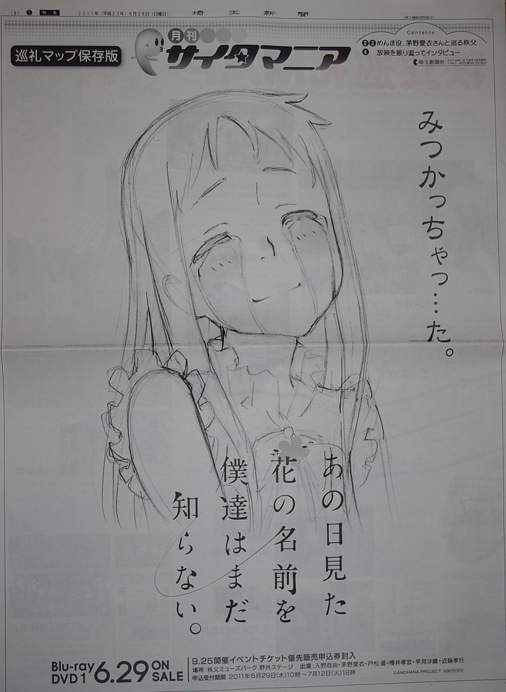 2011年(平成23年)6月29日(水曜日)
埼玉新聞
巡礼マップ保存版
月刊
サイタマニア
Contents
めんま役、茅野愛衣さんと巡る秩父
放映を振り返ってインタビュー
埼玉新聞社
みつかっちゃっ…た。
あの日見た
花の名前を
僕達はまだ
知らない。
Blu-ray
DVD 1
6.29 ON
SALE
9.25開催イベントチケット優先販売申込券封入
場所:秩父ミューズパーク 野外ステージ 出演:入野自由・茅野愛衣・戸松遥・櫻井孝宏・早見沙織・近藤孝行
申込受付期間 2011年6月29日(水)10時~7月12日(火)18時
©ANOHANA PROJECT